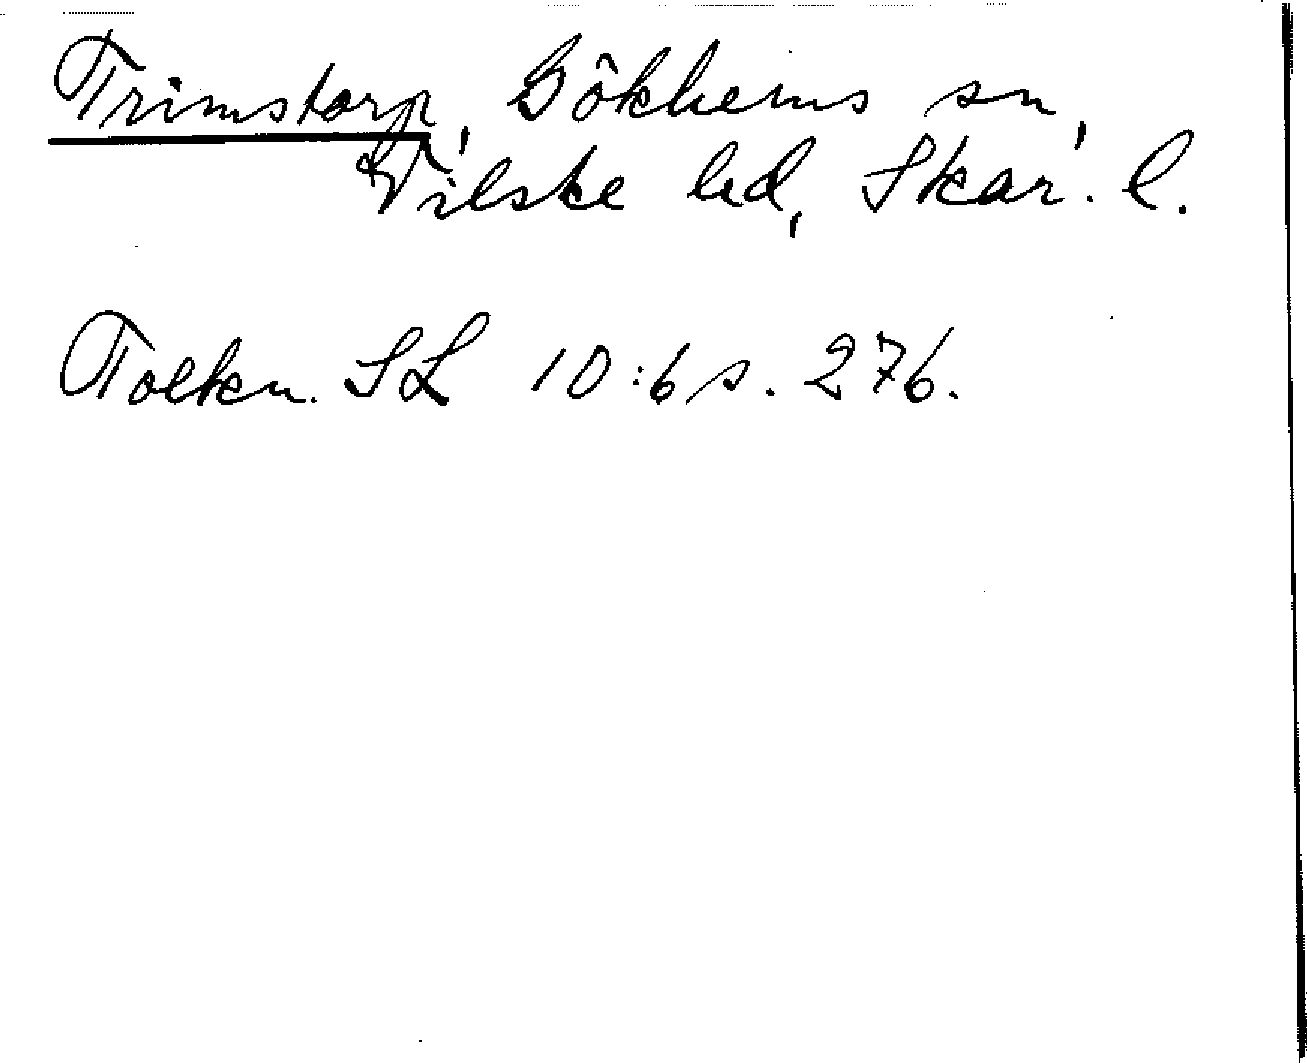 Trimstorp, Gökhems sn,
Vilske hd, Skar. l.
Tolkn. SL 10:6 s. 276.